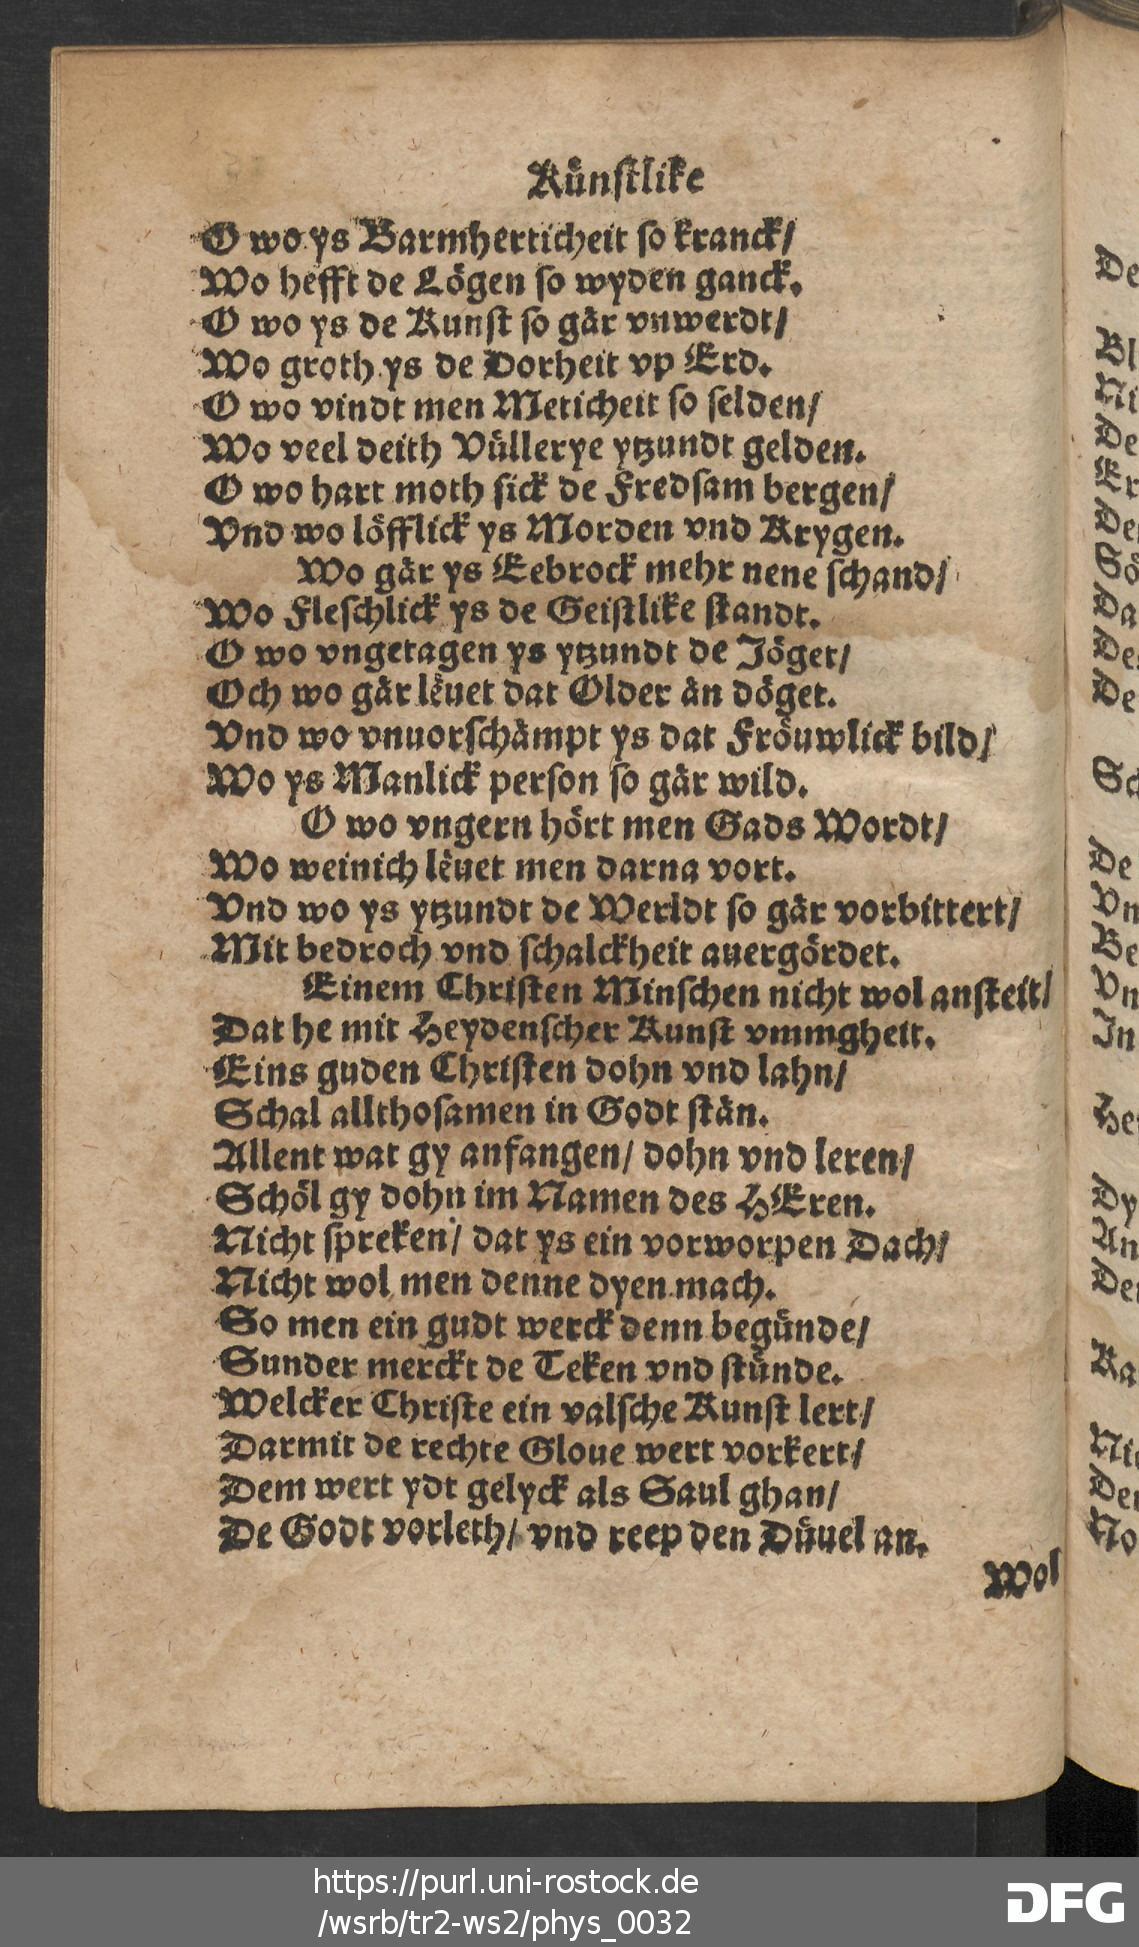 Kuͤnstlike
O wo ys Barmherticheit so kranck/
Wo hefft de Loͤgen so wyden ganck.
O wo ys de Kunst so gaͤr vnwerdt/
Wo groth ys de Dorheit vp Erd.
O wo vindt men Meticheit so selden/
Wo veel deith Vuͤllerye ytzundt gelden.
O wo hart moth sick de Fredsam bergen/
Vnd wo loͤfflick ys Morden vnd Krygen.
Wo gaͤr ys Eebrock mehr nene schand/
Wo Fleschlick ys de Geistlike standt.
O wo vngetagen ys ytzundt de Joͤget/
Och wo gaͤr leͤuet dat Older aͤn doͤget.
Vnd wo vnuorschaͤmpt ys dat Froͤuwlick bild/
Wo ys Manlick person so gaͤr wild.
O wo vngern hoͤrt men Gads Wordt/
Wo weinich leͤuet men darna vort.
Vnd wo ys ytzundt de Werldt so gaͤr vorbittert/
Mit bedroch vnd schalckheit auergoͤrdet.
Einem Christen Minschen nicht wol ansteit/
Dat he mit Heydenscher Kunst vmmgheit.
Eins guden Christen dohn vnd lahn/
Schal allthosamen in Godt staͤn.
Allent wat gy anfangen/ dohn vnd leren/
Schoͤl gy dohn im Namen des HEren.
Nicht spreken/ dat ys ein vorworpen Dach/
Nicht wol men denne dyen mach.
So men ein gudt werck denn beguͤnde/
Sunder merckt de Teken vnd stuͤnde.
Welcker Christe ein valsche Kunst lert/
Darmit de rechte Gloue wert vorkert/
Dem wert ydt gelyck als Saul ghan/
De Godt vorleth/ vnd reep den Duͤuel an.
Wol
https://purl.uni-rostock.de
/wsrb/tr2-ws2/phys_0032
DFG